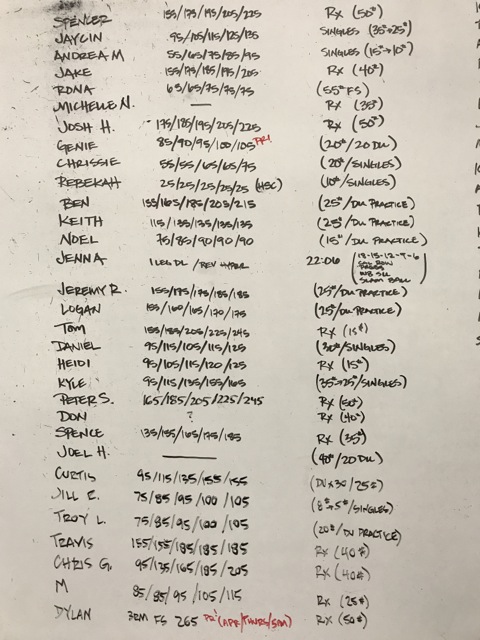 SPENCER 155/175/195/205/225 Rx (50#)
JAYLIN 95/105/115/125/135 SINGLES (35#→25#)
ANDREA M 55/65/75/85/95 SINGLES (15#→10#)
JAKE 155/175/185/195/205 Rx (40#)
RONA 65/65/75/75/75 (55# FS)
MICHELLE N. — Rx (35#)
JOSH H. 175/185/195/205/225 Rx (50#)
GENIE 85/90/95/100/105 PR! (20#/20 DU)
CHRISSIE 55/55/65/65/75 (20#/SINGLES)
REBEKAH 25/25/25/25/25 (HSC) (10#/SINGLES)
BEN 155/165/185/205/215 (25#/DU PRACTICE)
KEITH 115/135/135/135/135 (25#/DU PRACTICE)
NOEL 75/85/90/90/90 (15#/DU PRACTICE)
JENNA 1 LEG DL /REV HYPER 22:06 (18-15-12-9-6
CAL ROW
SLAM BALL)
JEREMY R. 155/175/175/185/185 (25#/DU PRACTICE)
LOGAN 155/160/165/170/175 (25#/DU PRACTICE)
TOM 155/185/205/225/245 Rx (15#)
DANIEL 95/115/105/115/125 (30#/SINGLES)
HEIDI 95/105/115/120/125 Rx (15#)
KYLE 95/115/135/155/165 (35#→25#/SINGLES)
PETER S. 165/185/205/225/245 Rx (50#)
DON ? Rx (40#)
SPENCE 135/155/165/175/185 Rx (35#)
JOEL H. — (40#/20 DU)
CURTIS 95/115/135/155/155 (DU x 30/25#)
JILL R. 75/85/95/100/105 (8#→5#/SINGLES)
TROY L. 75/85/95/100/105 (20#/DU PRACTICE)
TRAVIS 155/155/185/185/185 Rx (40#)
CHRIS G. 95/135/165/185/205 Rx (40#)
M 85/85/95/105/115 Rx (25#)
DYLAN 3RM FS 265 PR! (APR/THURS/5PM) Rx (50#)